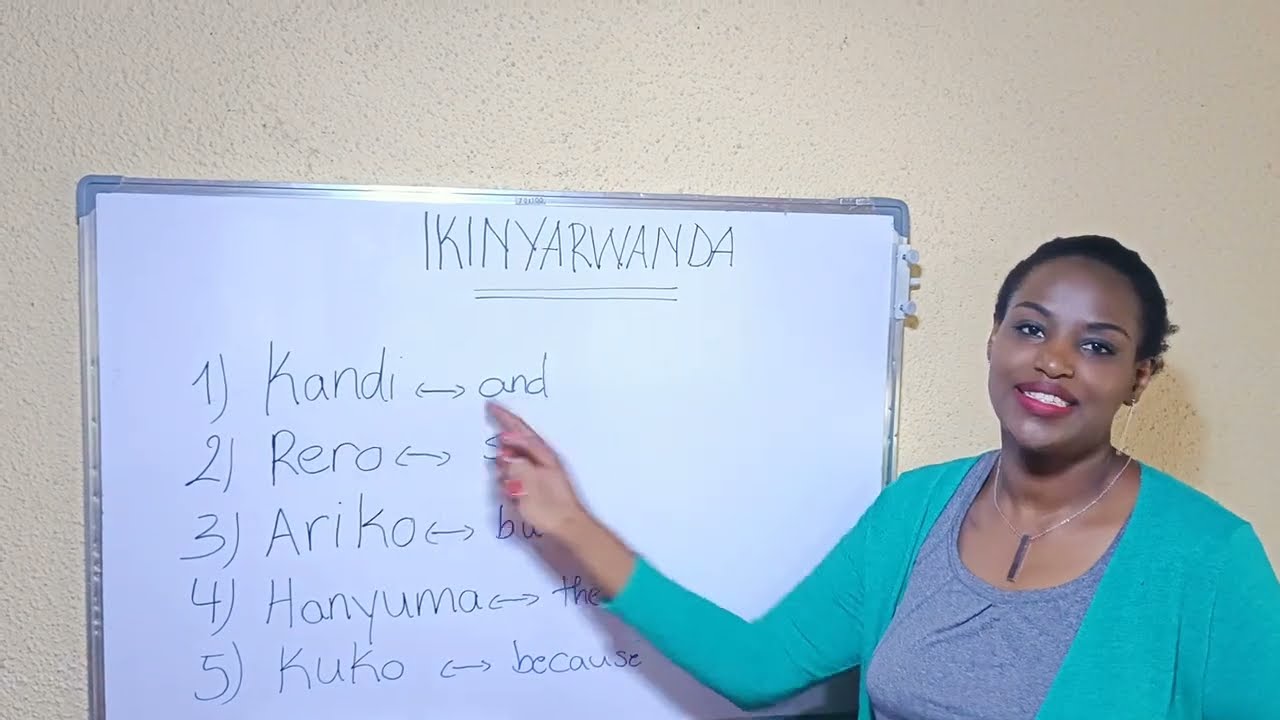 IKINYARWANDA
1) Kandi ↔ and
2) Rero ↔
3) Ariko ↔
4) Hanyuma ↔
5) Kuko ↔ because